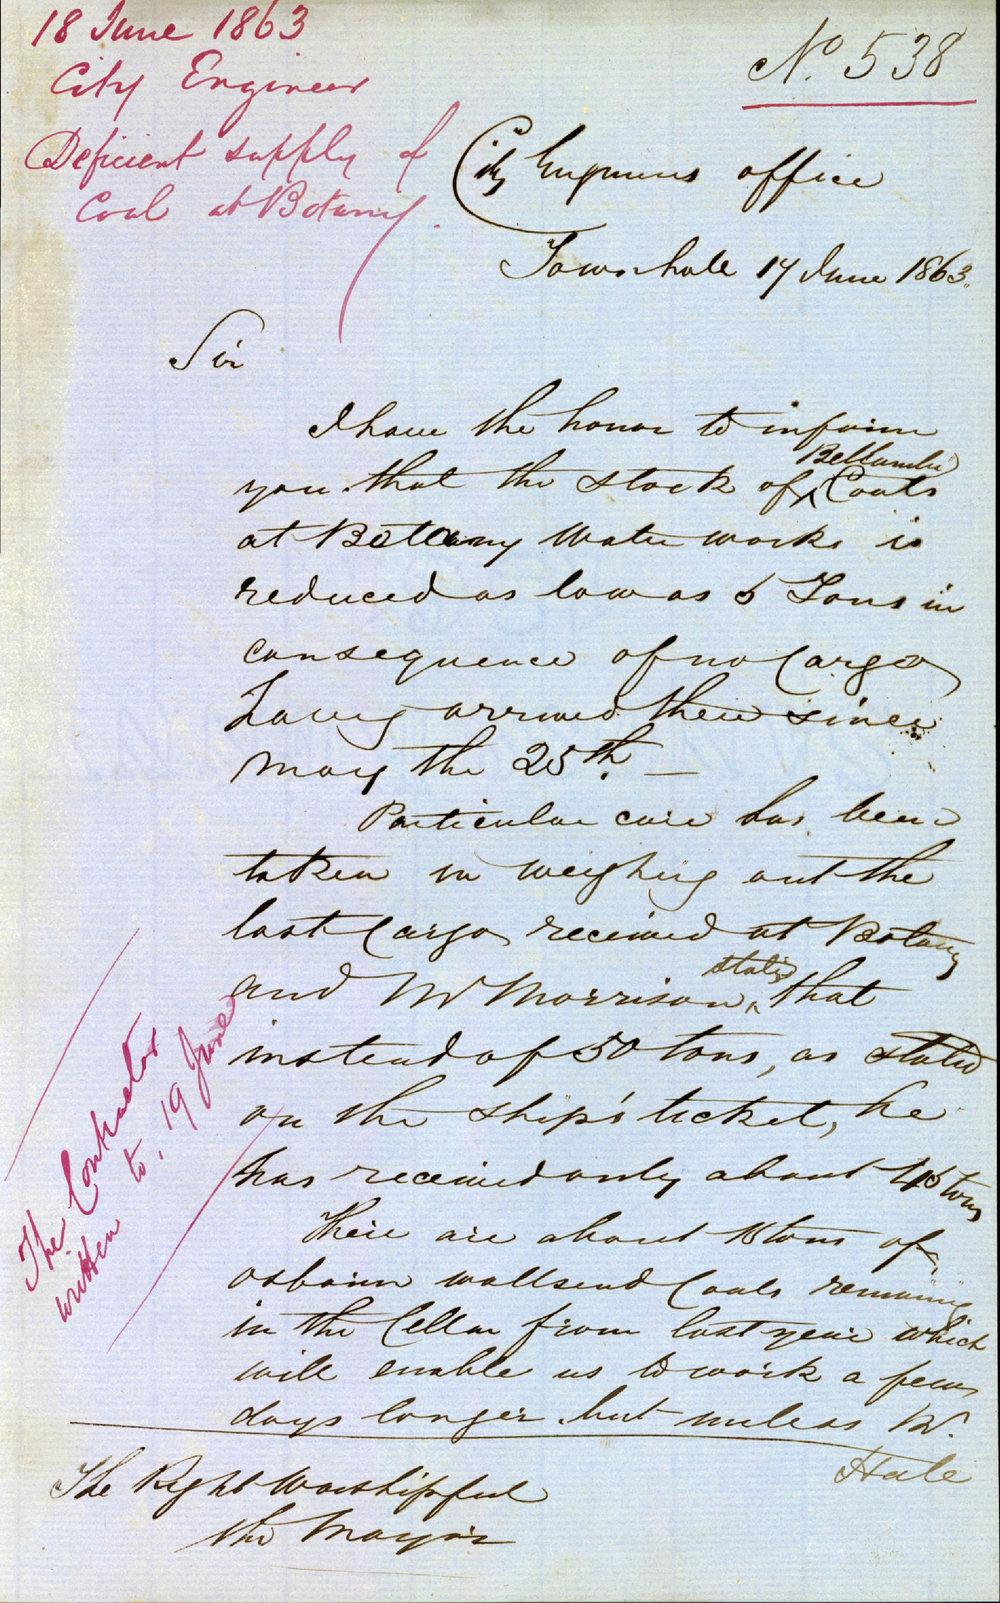 18 June 1863
City Engineer
Deficient supply of
Coal at Botany.
No. 538
City Engineers office
Townhall 17 June 1863.
Sir
I have the honor to inform
you that the stock of Bellambi Coals
at Botany Water works is
reduced as low as 5 Tons in
consequence of no Cargo
having arrived there since
May the 25th. —
Particular care has been
taken in weighing out the
last Cargo received at Botany
and Mr Morrison states, that
instead of 50 tons, as stated
on the ship's ticket, he
has received only about 45 tons
There are about 15 tons of
osborn wallsend Coals remaining
in the Cellar from last year which
will enable us to work a few
days longer but unless Mr.
Hale
The Right Worshipful
the Mayor
The Contractor
written to. 19 June